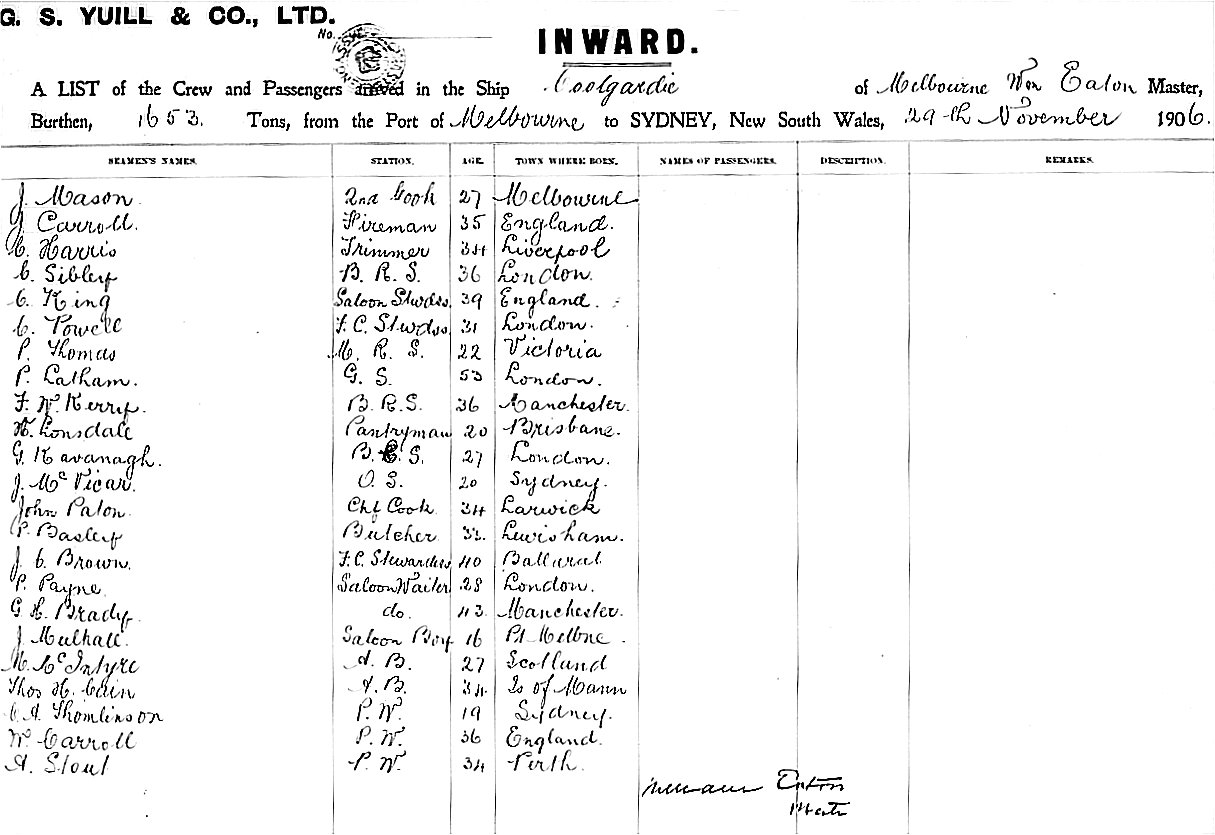 G. S. YUILL & CO., LTD.
No.
INWARD.
A LIST of the Crew and Passengers arrived in the Ship Coolgardie of Melbourne Wm Eaton Master,
Burthen, 1653 Tons, from the Port of Melbourne to SYDNEY, New South Wales, 29th November 1906.
SEAMEN'S NAMES. STATION. AGE. TOWN WHERE BORN. NAMES OF PASSENGERS. DESCRIPTION. REMARKS.
J. Mason. 2nd Cook 27 Melbourne
J Carroll. Fireman 35 England.
C. Harris Trimmer 34 Liverpool
C. Sibley B. R. S. 36 London.
C. King Saloon Stwdss. 39 England.
C. Powell F. C. Stwdss. 31 London.
P. Thomas M. R. S. 22 Victoria
P. Latham. G. S. 53 London.
F. W. Kerry. B. R. S. 36 Manchester.
H. Lonsdale Pantryman 20 Brisbane.
G. Kavanagh. B. C. S. 27 London.
J. Mc Vicar. O. S. 20 Sydney.
John Paton. Chf Cook 34 Larwick
P. Basley Butcher 32. Lewisham.
J. C. Brown. F. C. Stewardess 40 Ballarat
P. Payne. Saloon Waiter 28 London.
G. H. Brady. do. 43. Manchester.
J. Mulhall. Saloon Boy 16 Pt Melbne.
M. McIntyre A. B. 27 Scotland
Thos H. Cain A. B. 34 Is of Mann
C. A. Thomlinson P. W. 19 Sydney.
W. Carroll P. W. 36 England.
A. Stout P. W. 34 Perth.
Eaton